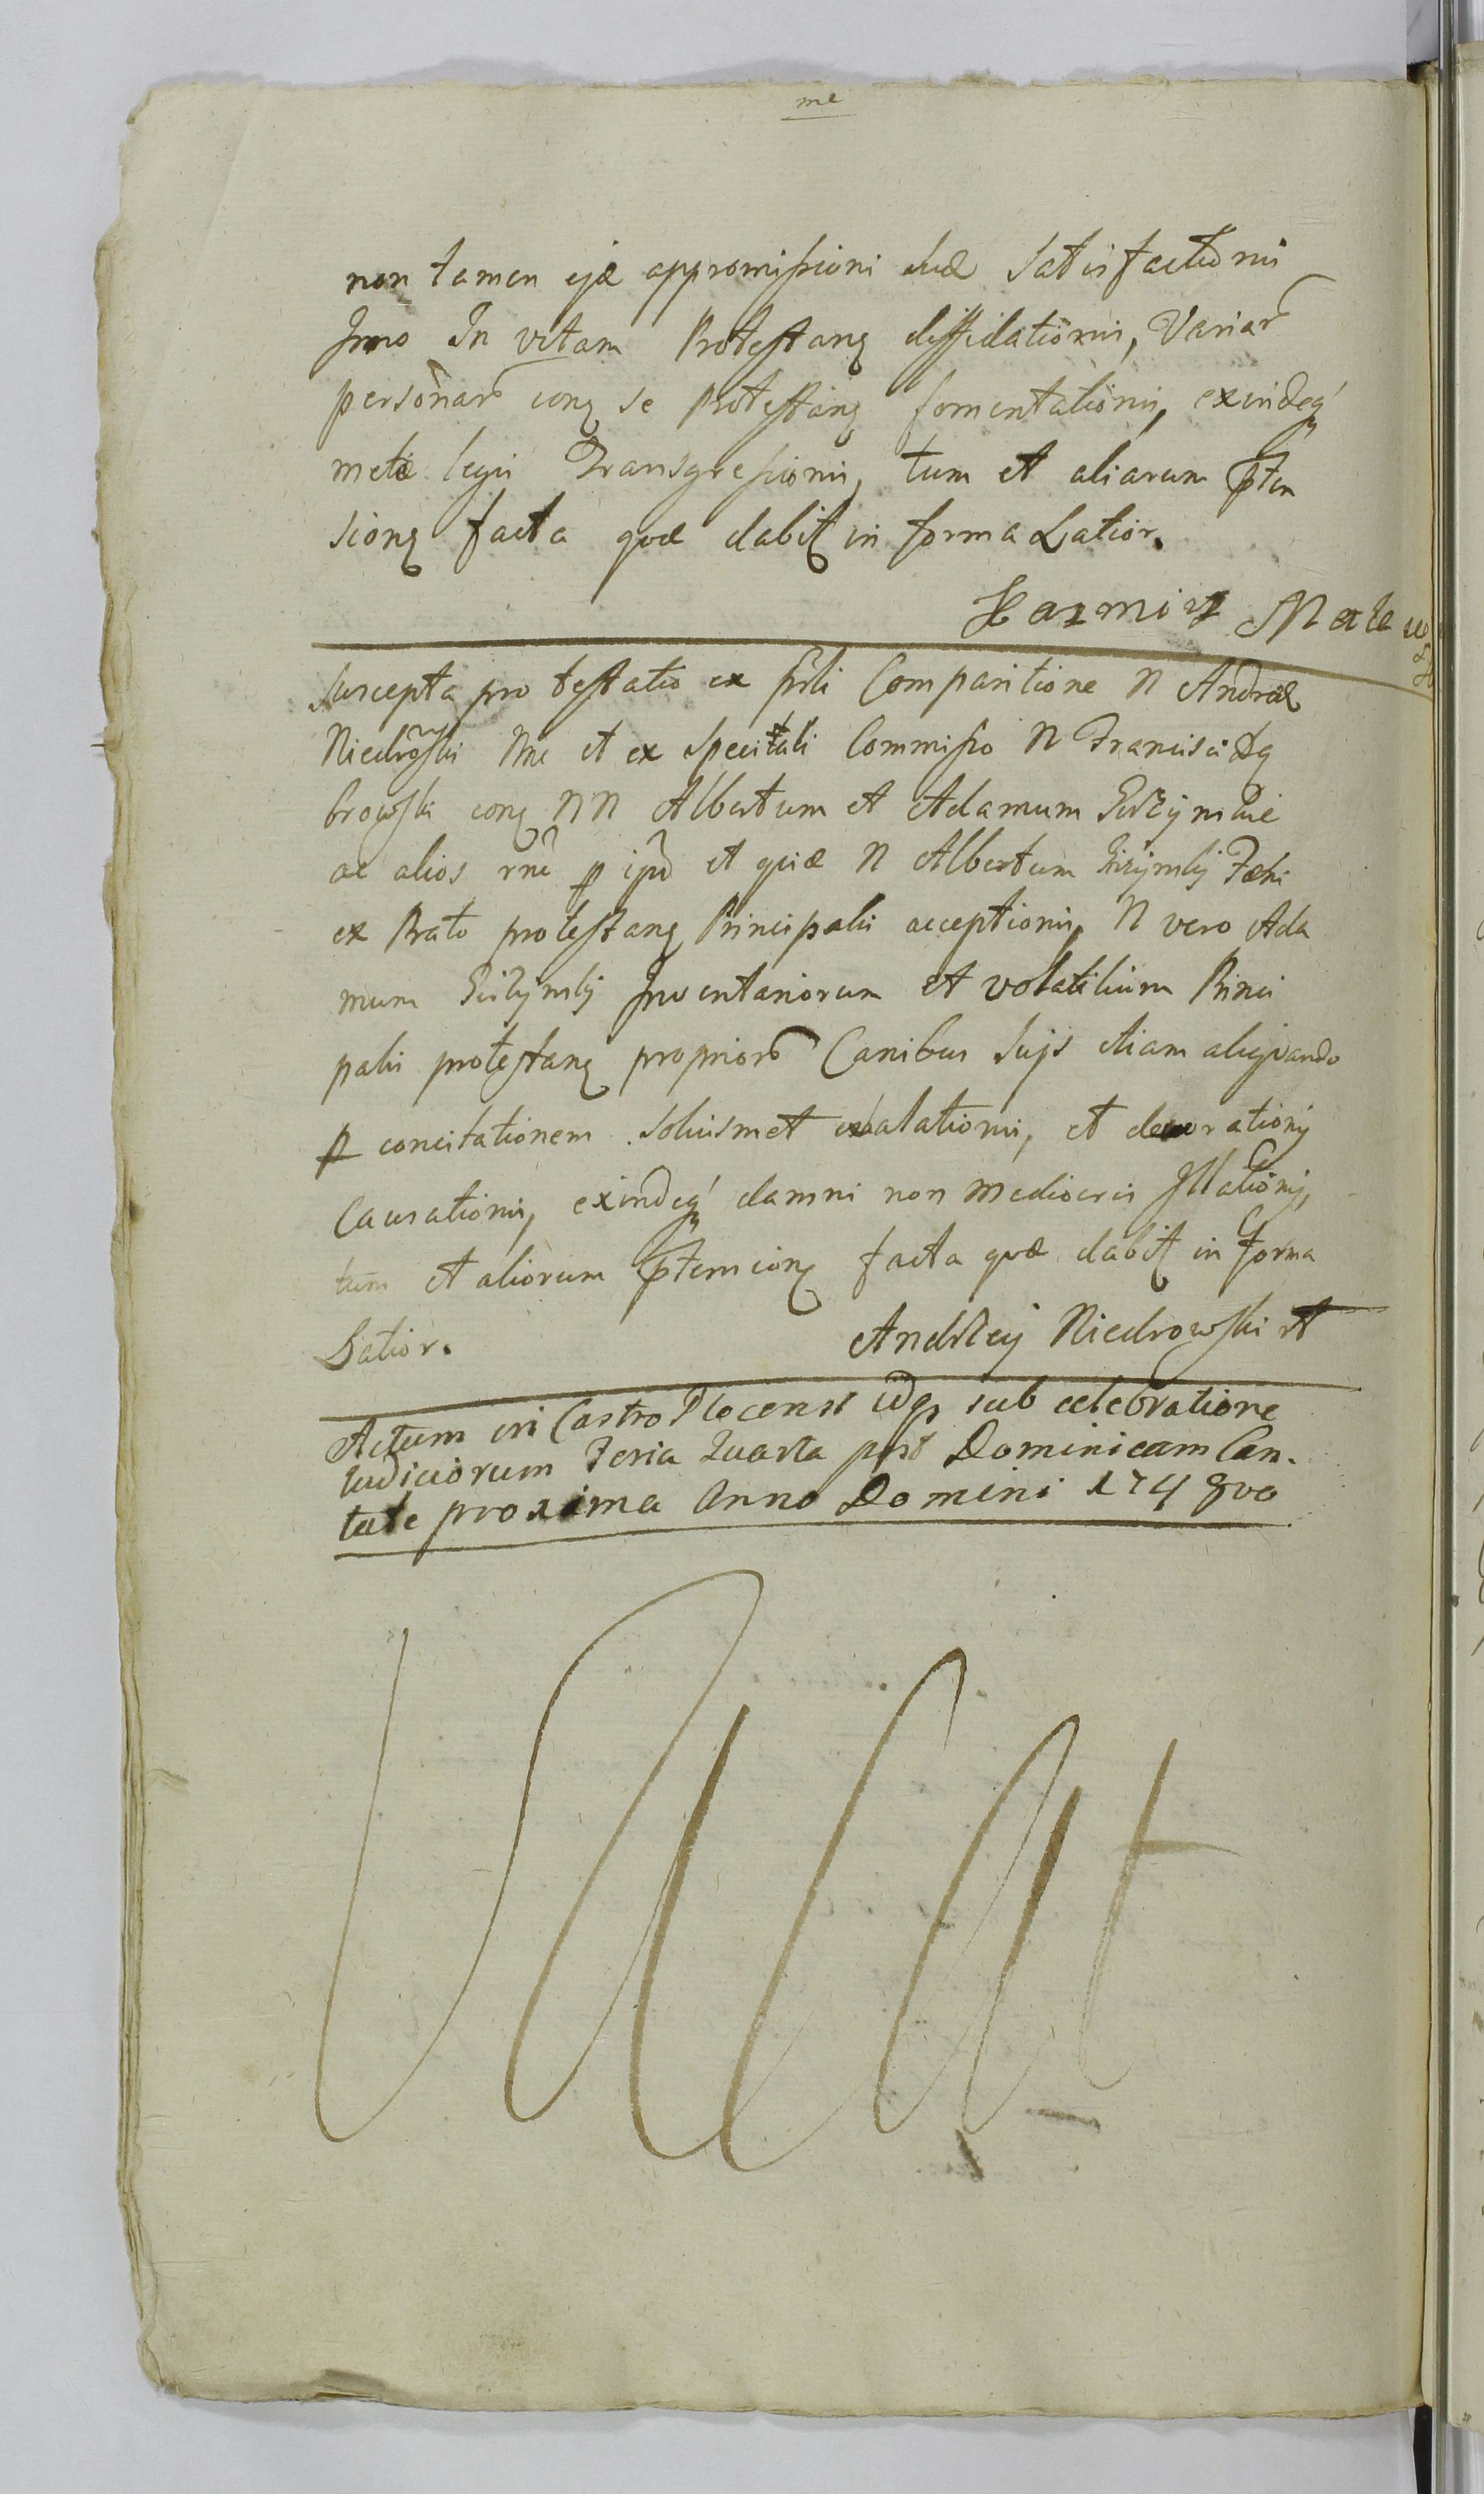 me
non tamen ejæ appromissioni suæ Satisfactionis
Immo In vitam Protestang diffidationis, Variar
personar cong se Protestang fomentationis, exindeq
metæ legis Transgressionis, tum et aliarum pten
siong facta quæ dabit in forma Latior.
Kazmirz Malews
Suscepta protestatio ex prsli Comparitione N Andreæ
Niedrowski Nne et ex Speciali Commisso N Francisci Dą
browski cong NN Albertum et Adamum
ac alios rne p ipo et quia N Albertum Fæni
ex Prato protestang Principalis acceptionis, N vero Ada
mum Inventariorum et volatilium Princi
palis protestang proprior Canibus Suijs etiam aliquando
p concitationem soliusmet et devorationis
Causationis, exindeq damni non mediocris Illationis,
tum et aliorum ptensiong facta quæ dabit in forma
Latior.
Andrzey Niedrowski
Actum in Castro Plocensi idq sub celebratione
Judiciorum Feria Quarta post Dominicam Can.
tate proxima Anno Domini 1748vo